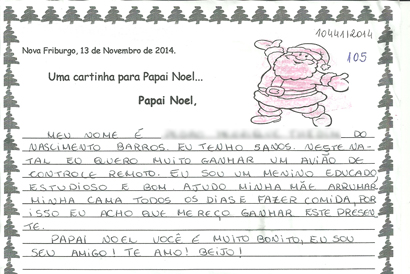 1044112014
105
Nova Friburgo, 13 de Novembro de 2014.
Uma cartinha para Papai Noel...
Papai Noel,
MEU NOME É DO
NASCIMENTO BARROS. EU TENHO 5 ANOS. NESTE NA-
TAL EU QUERO MUITO GANHAR UM AVIÃO DE
CONTROLE REMOTO. EU SOU UM MENINO EDUCADO
ESTUDIOSO E BOM. AJUDO MINHA MÃE ARRUMAR
MINHA CAMA TODOS OS DIAS E FAZER COMIDA, POR
ISSO EU ACHO QUE MEREÇO GANHAR ESTE PRESEN
TE.
PAPAI NOEL VOCÊ É MUITO BONITO, EU SOU
SEU AMIGO! TE AMO! BEIJO!